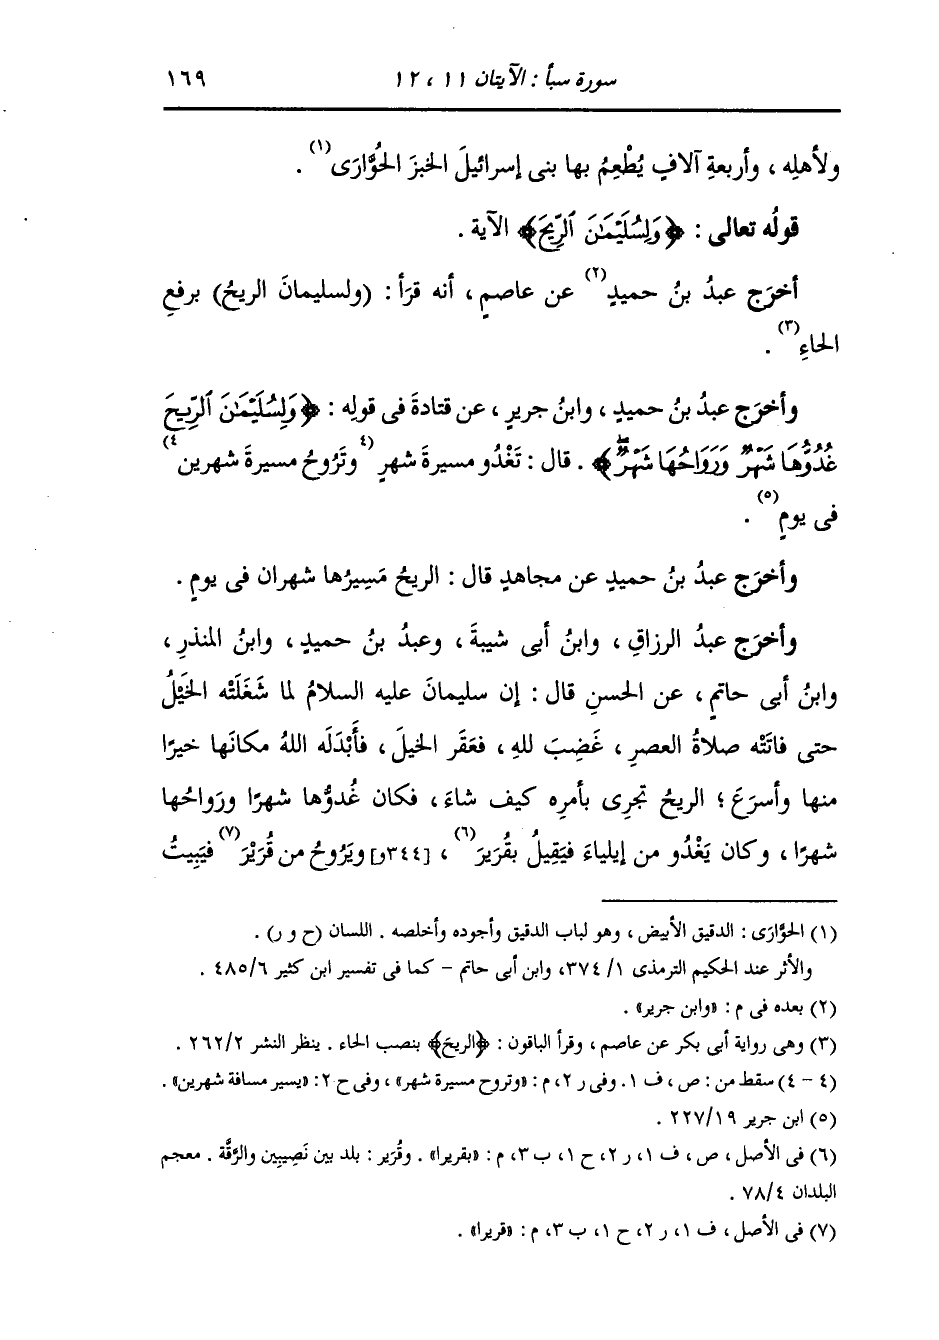 سورة سبأ : الآيتان ١١ ، ١٢ ١٦٩
ولأهلِه ، وأربعةِ آلافٍ يُطْعِمُ بها بنى إسرائيلَ الخبزَ الحُوَّارَى(١) .
قولُه تعالى : ﴿وَلِسُلَيْمَٰنَ ٱلرِّيحَ﴾ الآية .
أخرَج عبدُ بنُ حميدٍ(٢) عن عاصمٍ ، أنه قرَأ : (ولسليمانَ الريحُ) برفعِ
الحاءِ(٣) .
وأخرَج عبدُ بنُ حميدٍ ، وابنُ جريرٍ ، عن قتادةَ فى قولِه : ﴿وَلِسُلَيْمَٰنَ ٱلرِّيحَ
غُدُوُّهَا شَهْرٌ وَرَوَاحُهَا شَهْرٌۖ﴾ . قال : تَغْدُو مسيرةَ شهرٍ (٤وتَرُوحُ مسيرةَ شهرين٤)
فى يومٍ(٥) .
وأخرَج عبدُ بنُ حميدٍ عن مجاهدٍ قال : الريحُ مَسِيرُها شهران فى يومٍ .
وأخرَج عبدُ الرزاقِ ، وابنُ أبى شيبةَ ، وعبدُ بنُ حميدٍ ، وابنُ المنذرِ ،
وابنُ أبى حاتمٍ ، عن الحسنِ قال : إن سليمانَ عليه السلامُ لما شَغَلَتْه الخَيْلُ
حتى فاتَتْه صلاةُ العصرِ ، غَضِبَ للهِ ، فعَقَر الخيلَ ، فأَبْدَله اللهُ مكانَها خيرًا
منها وأسرَعَ ؛ الريحُ تجرِى بأمرِه كيف شاءَ ، فكان غُدوُّها شهرًا ورَواحُها
شهرًا ، وكان يَغْدُو من إيلياءَ فيَقِيلُ بقُرَيرَ(٦) ، [٣٤٤و] ويَرُوحُ من قُرَيْرَ(٧) فيَبِيتُ
(١) الحوَّارَى : الدقيق الأبيض ، وهو لباب الدقيق وأجوده وأخلصه . اللسان (ح و ر) .
والأثر عند الحكيم الترمذى ١/ ٣٧٤، وابن أبى حاتم – كما فى تفسير ابن كثير ٤٨٥/٦ .
(٢) بعده فى م : «وابن جرير» .
(٣) وهى رواية أبى بكر عن عاصم ، وقرأ الباقون : ﴿الريحَ﴾ بنصب الحاء . ينظر النشر ٢٦٢/٢ .
(٤ – ٤) سقط من : ص ، ف ١. وفى ر ٢، م : «وتروح مسيرة شهر» ، وفى ح ٢: «يسير مسافة شهرين» .
(٥) ابن جرير ٢٢٧/١٩ .
(٦) فى الأصل ، ص ، ف ١، ر ٢، ح ١، ب ٣، م : «بقريرا» . وقُرَير : بلد بين نَصِيبِين والرَّقَّة . معجم
البلدان ٧٨/٤ .
(٧) فى الأصل ، ف ١، ر ٢، ح ١، ب ٣، م : «قريرا» .